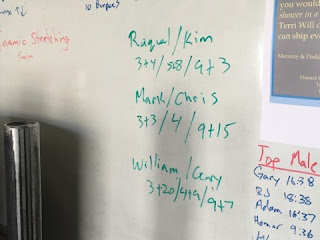 10 Burpees
Dynamic Stretching
5min
Raquel/Kim
3+4/5+8/9+3
Mark/Chris
3+3/4/9+15
William/Gary
3+20/4+9/9+7
you would
shower in a
Terri Will c
can ship eve
Top Male
Gary 16:38
BJ 18:38
Adam 16:37
Homer 9:36